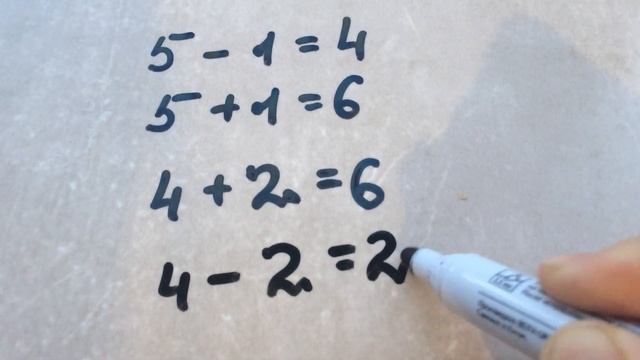 5 - 1 = 4
5 + 1 = 6
4 + 2 = 6
4 - 2 = 2